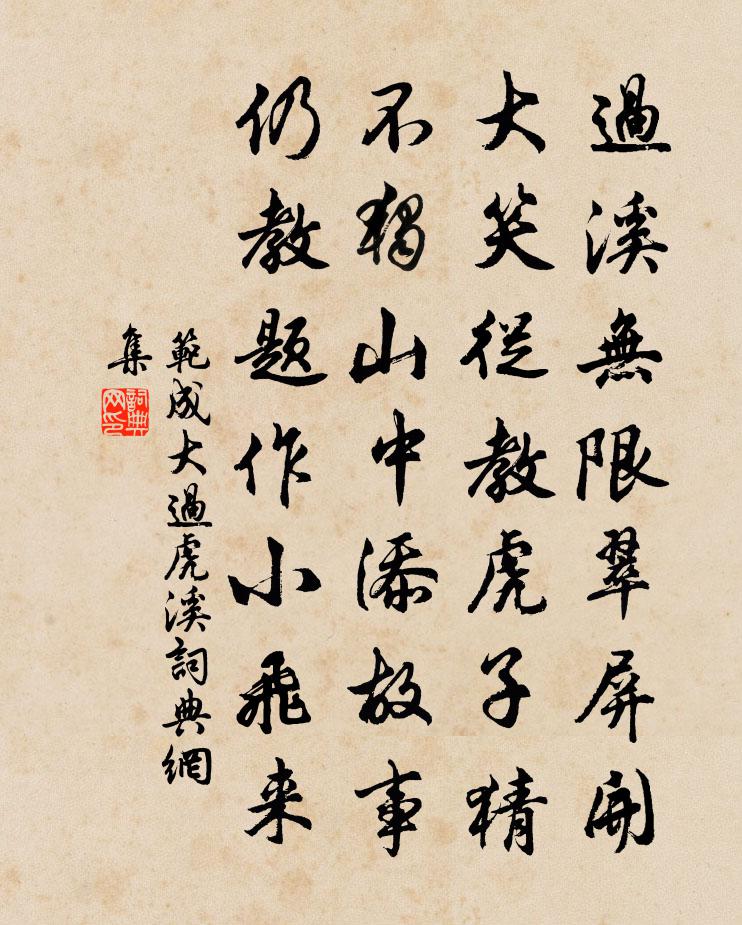 過溪無限翠屏開
大笑從教虎子猜
不獨山中添故事
仍教題作小飛来
範成大過虎溪詞典網
集
詞典
网印